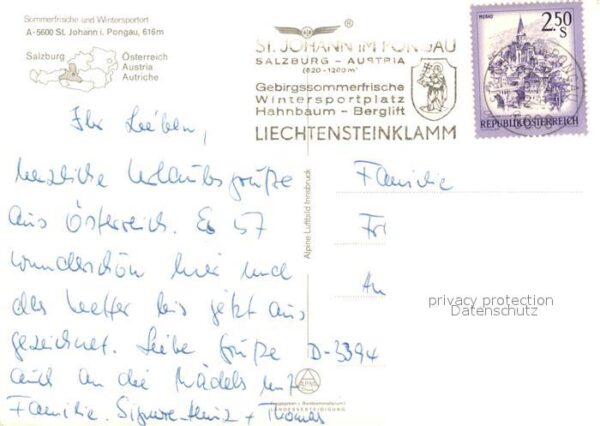 Sommerfrische und Wintersportort
A-5600 St. Johann i. Pongau, 616m
Salzburg
Österreich
Austria
Autriche
ST. JOHANN IM PONGAU
SALZBURG - AUSTRIA
(620-1200m)
Gebirgssommerfrische
Wintersportplatz
Hahnbaum - Berglift
LIECHTENSTEINKLAMM
MURAU
2.50
S
REPUBLIK ÖSTERREICH
Ihr Lieben,
herzliche Urlaubsgrüße
aus Österreich. Es ist
wunderschön hier und
das Wetter bis jetzt aus
gezeichnet. Liebe Grüße
auch an die Mädels mit
Familie. Heinz + Thomas
Alpine Luftbild Innsbruck
Familie
Fr
An
D-3394
privacy protection
Datenschutz